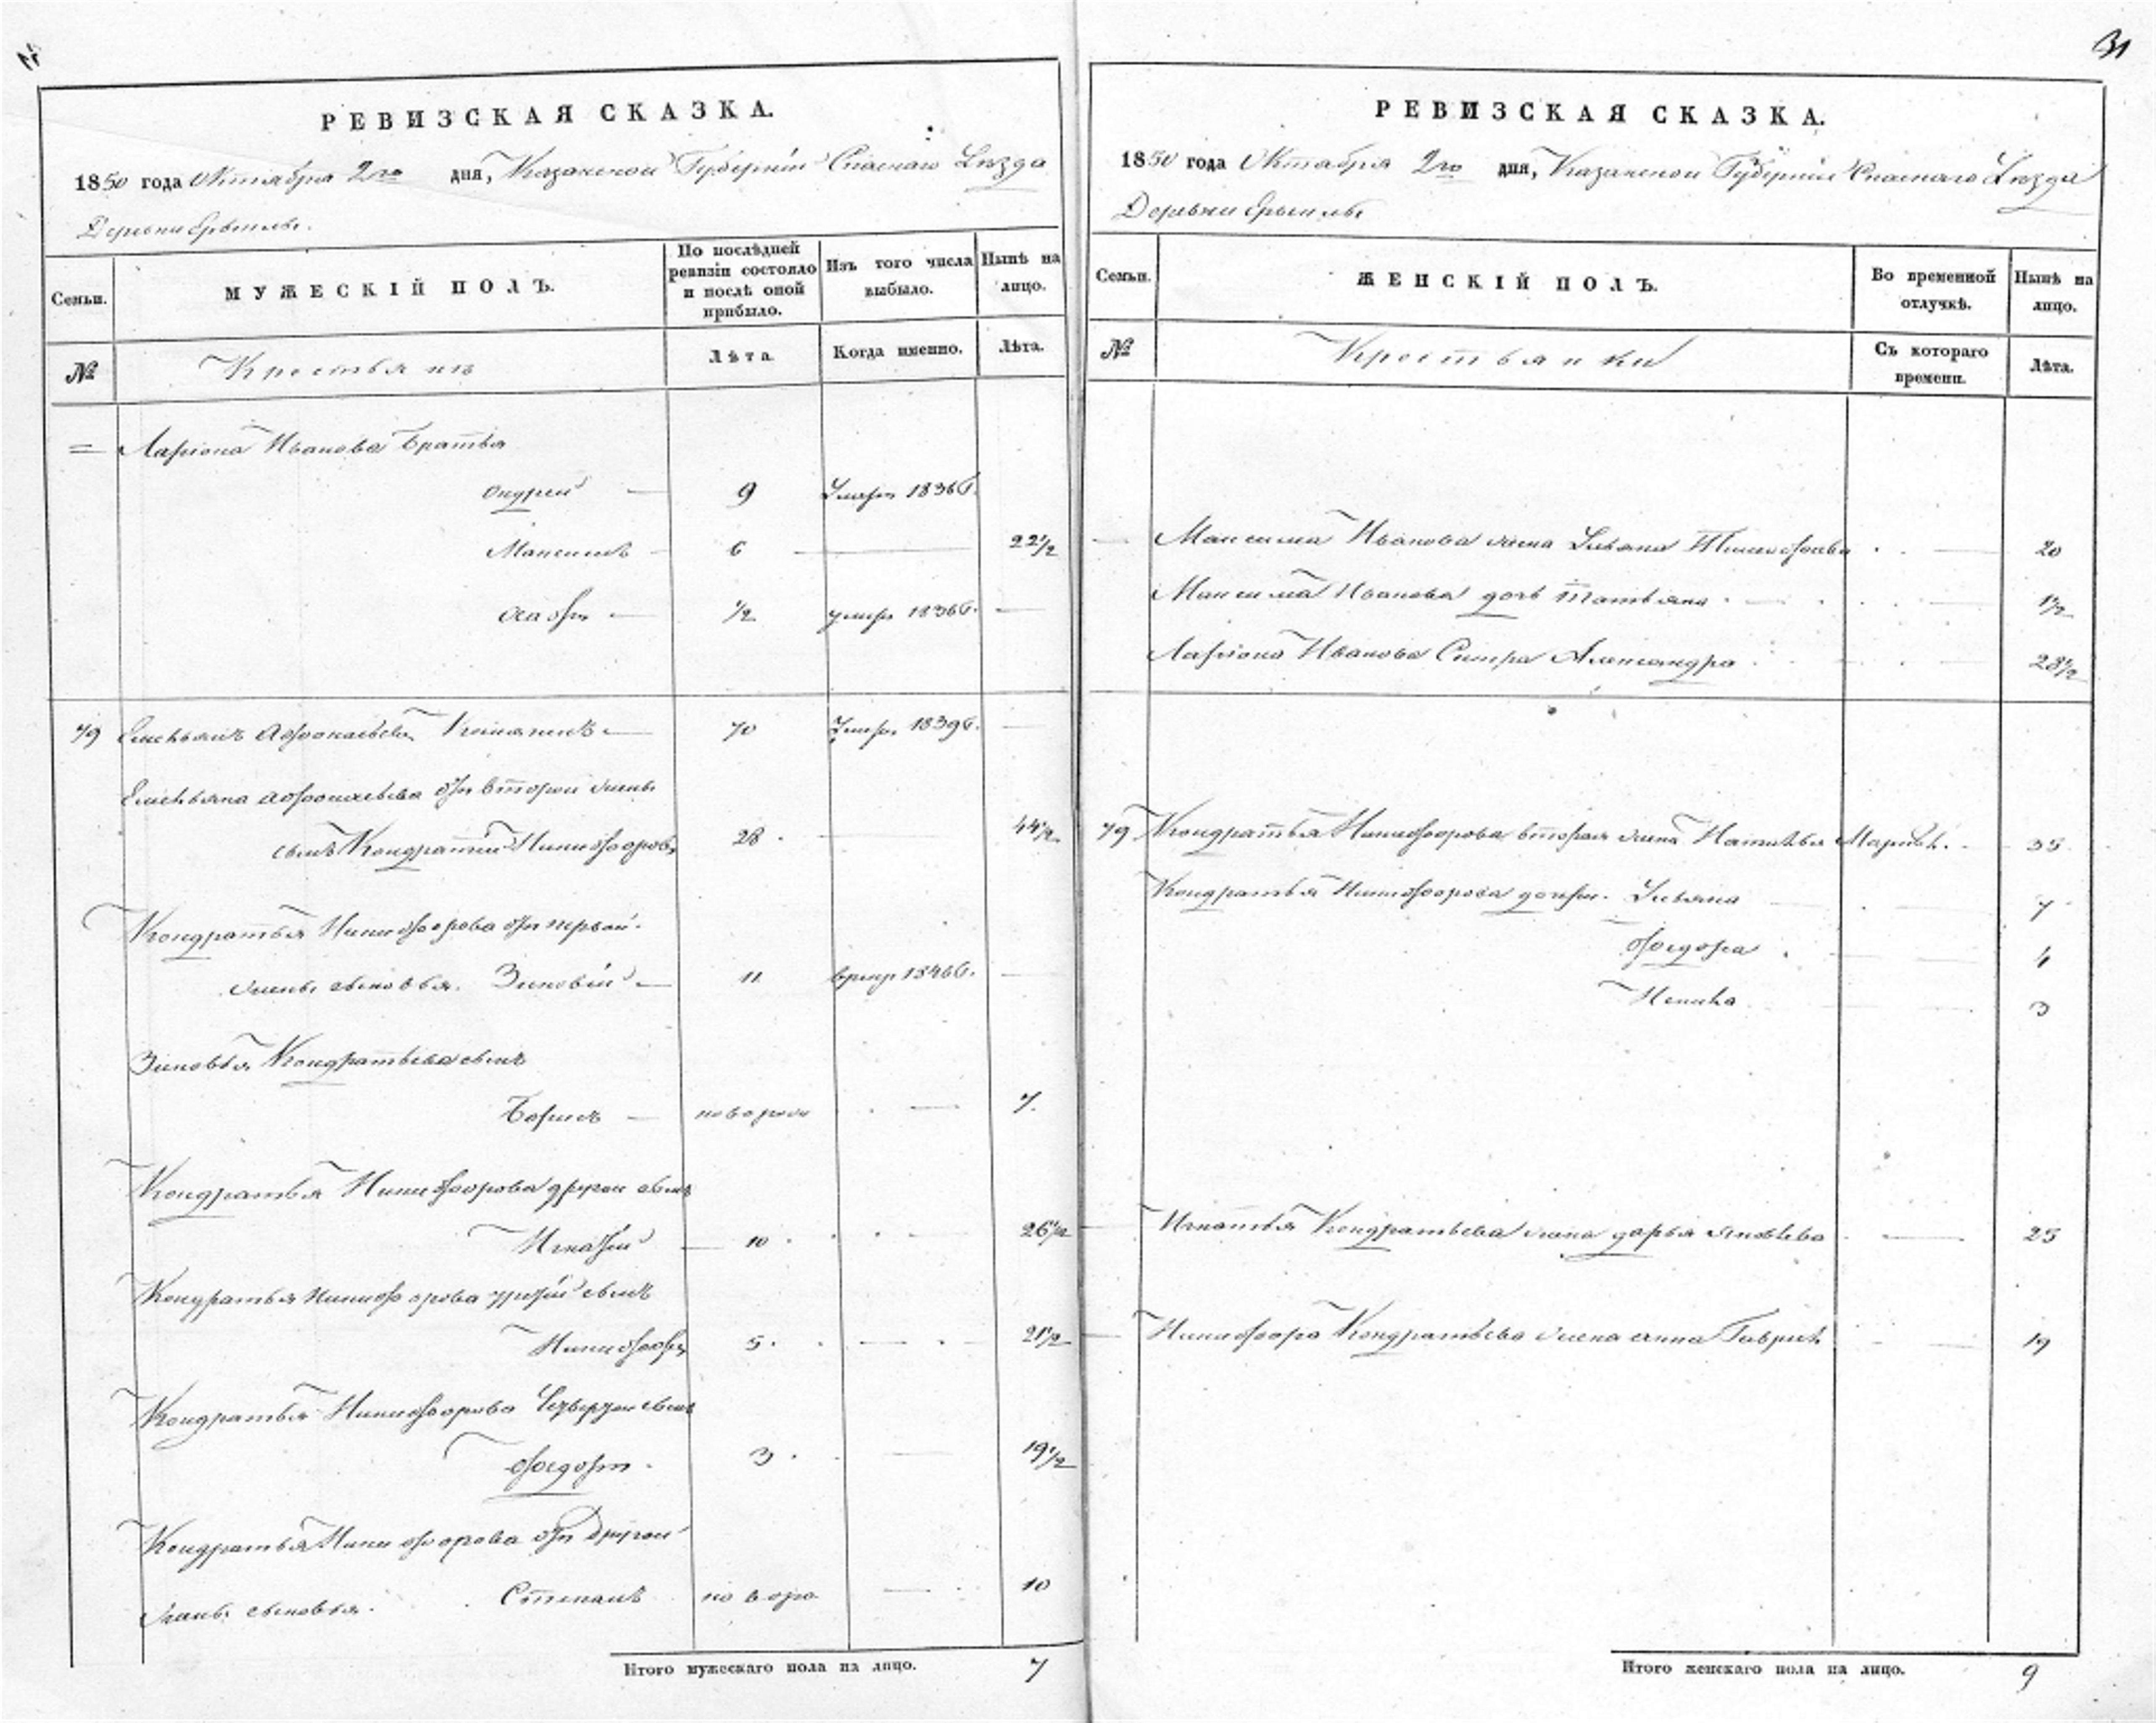 31
РЕВИЗСКАЯ СКАЗКА.
1850 года Октября 2го дня, Казанской Губерніи Спаскаго Уѣзда
Деревни
МУЖЕСКІЙ ПОЛЪ.
Семьи.
По послѣдней ревизіи состояло и послѣ оной прибыло.
Изъ того числа выбыло.
Нынѣ на лицо.
№
Крестьянъ
Лѣта.
Когда именно.
Лѣта.
Ларіона Иванова братья
Ондрей 9 Умеръ 1836г.
Максимъ 6 22½
½ умеръ 1836г.
79 Емельянъ 70 Умеръ 1839г.
Емельяна жены
сынъ Кондратий Никифоровъ 28 44½
Кондратья Никифорова отъ первой
жены сыновья. Зиновій 11 1846г.
Зиновья Кондратьева сынъ
Борисъ новорож 7
Кондратья Никифорова другой сынъ
Игнатій 10 26½
Кондратья Никифорова третій сынъ
Никифоръ 5 21½
Кондратья Никифорова сынъ
Федоръ 3 19½
Кондратья Никифорова отъ другой
жены сыновья. Степанъ новоро 10
Итого мужескаго пола на лицо. 7
31
РЕВИЗСКАЯ СКАЗКА.
1850 года Октября 2го дня, Казанской Губерніи Спаскаго Уѣзда
Деревни
Семьи.
ЖЕНСКІЙ ПОЛЪ.
Во временной отлучкѣ.
Нынѣ на лицо.
№
Крестьянки
Съ котораго времени.
Лѣта.
Максима Иванова жена Ульяна 20
Максима Иванова дочь Татьяна 1½
Ларіона Иванова Сестра Александра 28½
79 Кондратья Никифорова вторая жена 35
Кондратья Никифорова дочери. Ульяна 7
Федора 4
3
Игнатья Кондратьева жена дарья Яковлева 25
Никифора Кондратьева жена анна Гаврил 19
Итого женскаго пола на лицо. 9